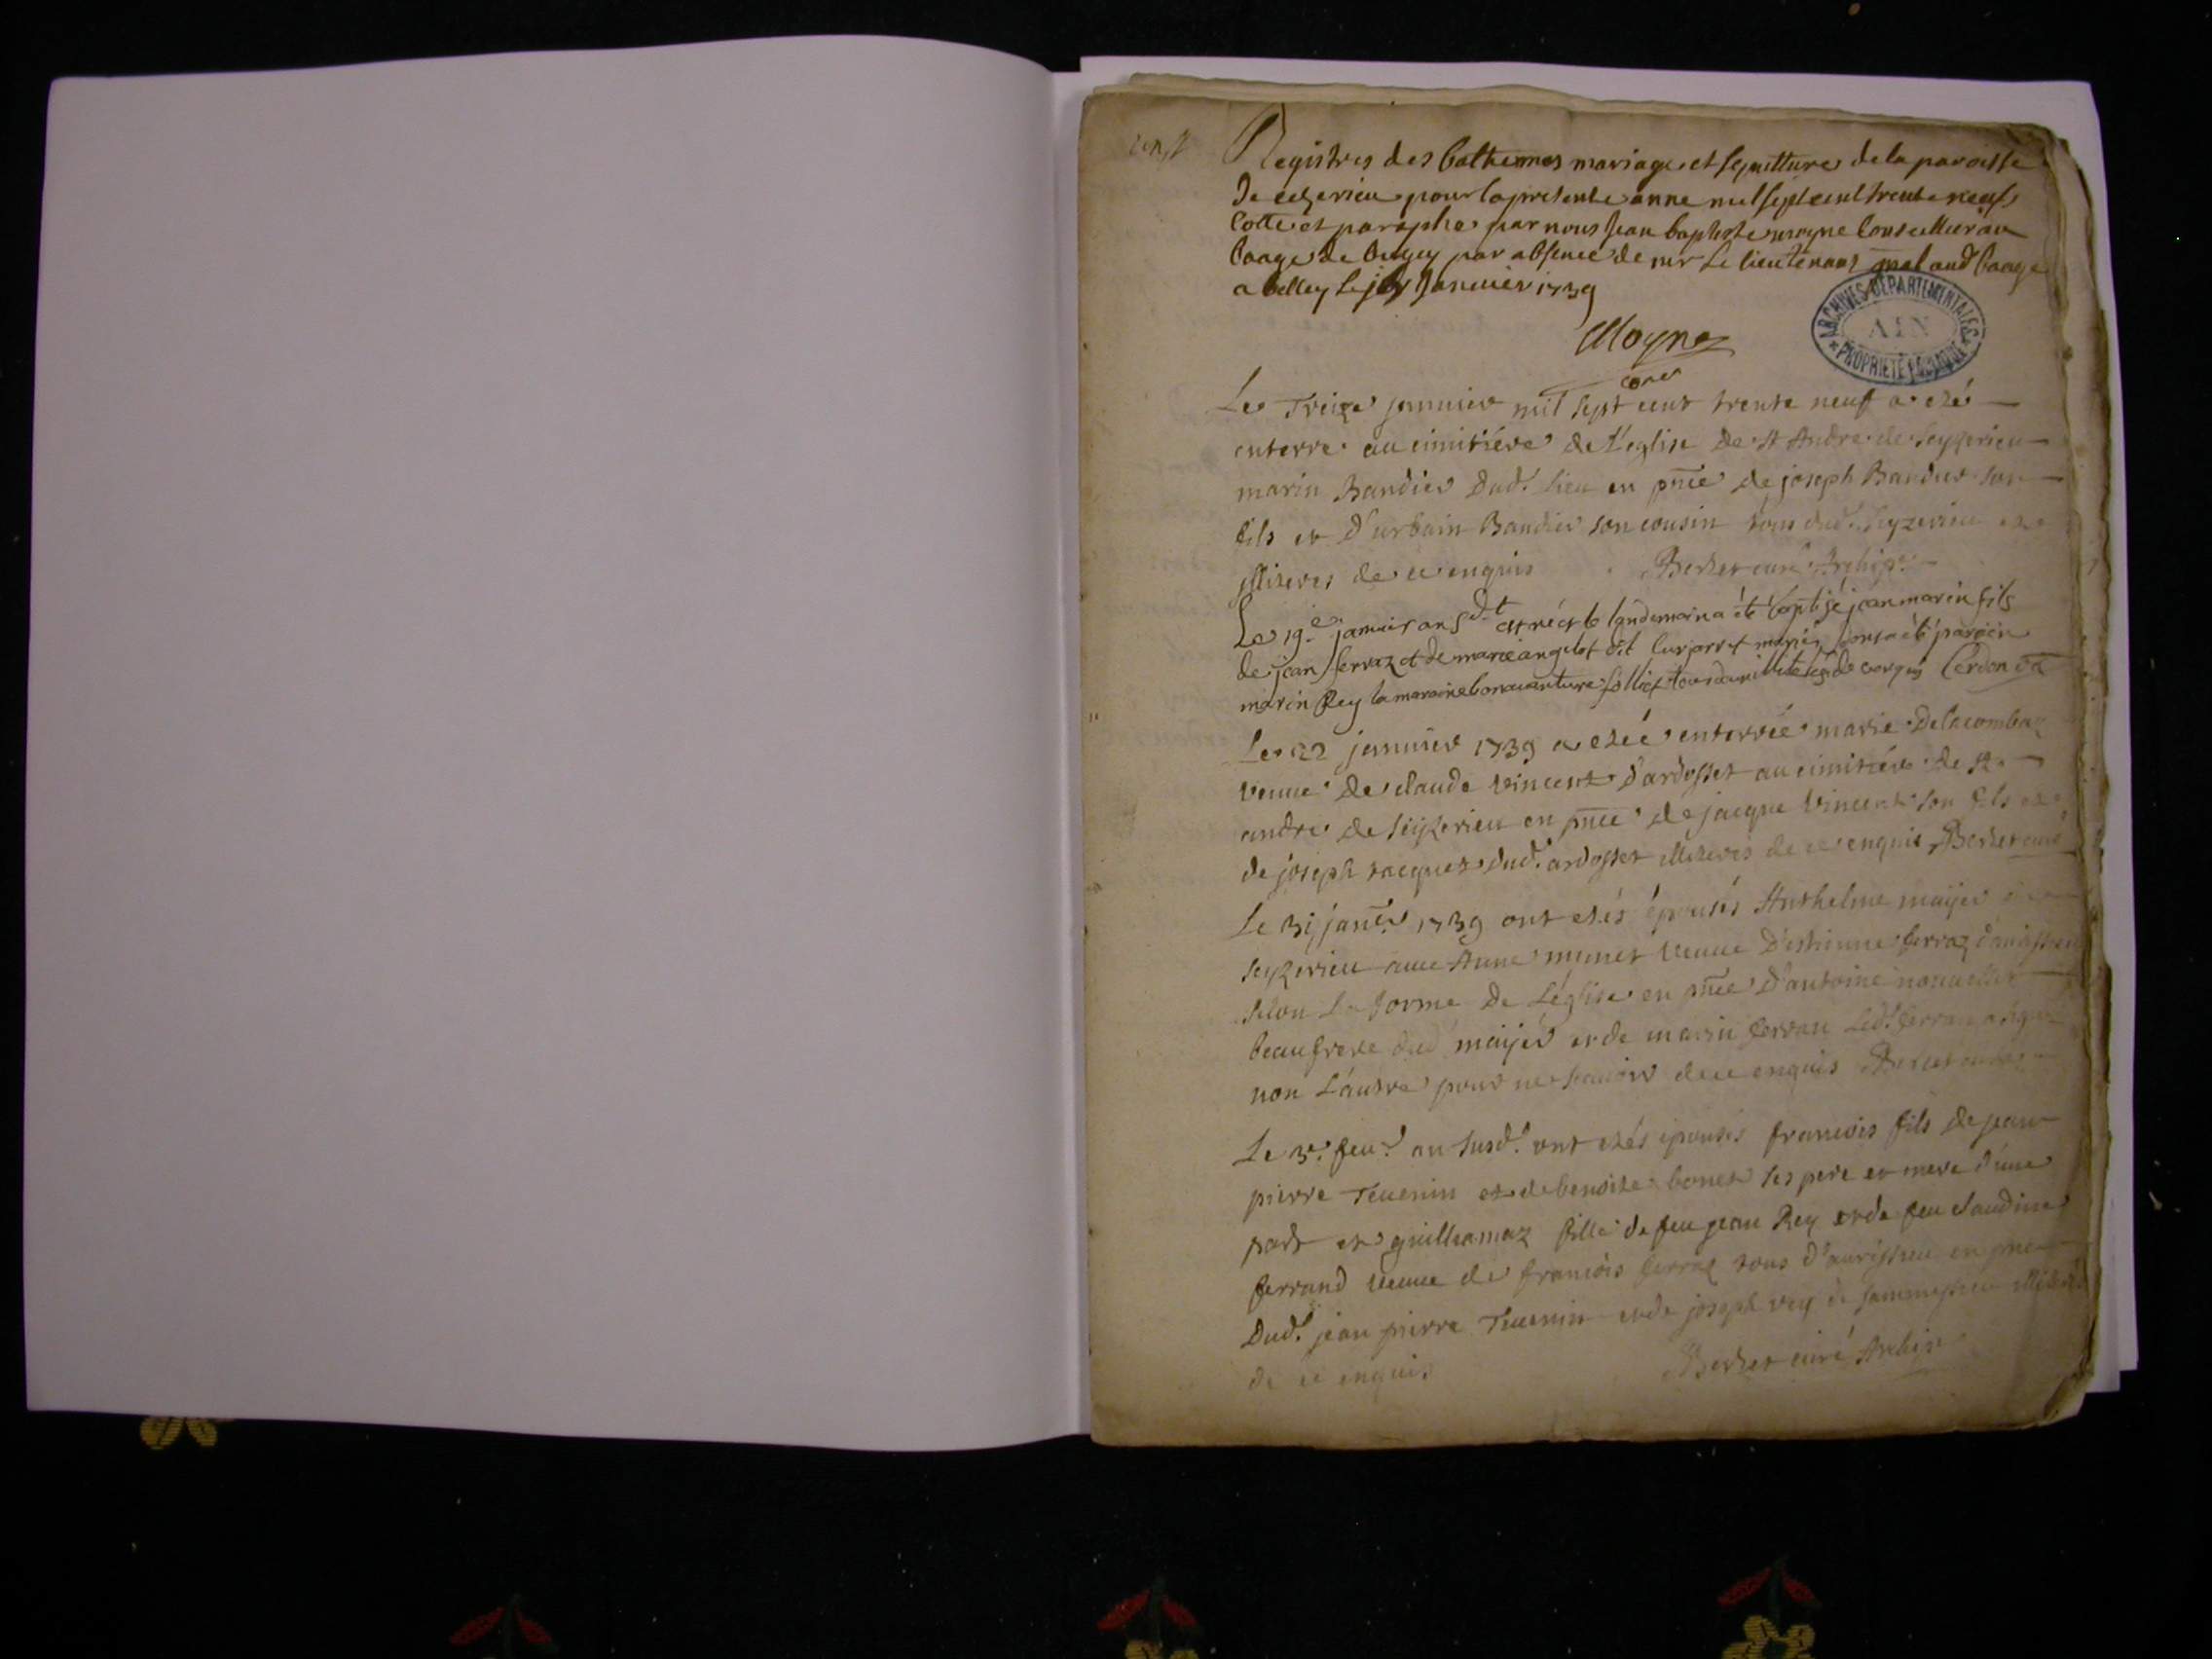 Registres des battemes mariage et sepultture de la paroisse
de ceyzerieu pour la presente anne mil sept cent trente neufs
Cotté et paraphé par nous Jean baptiste moyne Conseiller au
baage de bugey par absence de mr Le lieutenant gnal aud baage
a belley le Janvier 1739
Moyne
ARCHIVES DEPARTEMENTALES
AIN
PROPRIETE PUBLIQUE
Le Treize janvier mil sept cent trente neuf a eté
enterre au cimitiére de L'eglise de St Andre de Seyzerieu
marin Bandier dud. lieu en pnce de joseph Bandier son
fils et D'urbain Bandier son cousin tous dud. Seyzerieu et
illiteres de ce enquis Berset curé Archip.
Le 19e janvier an sdt est né et le landemain a été baptisé jean marin fils
de jean ferraz et de marie angelot dit mariés dont a été parain
marin Rey la maraine bonaventure follict tous illite de ce enquis Cerdon
Le 22 janvier 1739 a etéé enterrée marie Delacombaz
veuve de claude vincent d'ardosset au cimitiére de st
andre de Seyzerieu en pnce de jacque vincent son fils et
de joseph jacquet dud. ardosset illiteres de ce enquis Berset curé
Le 31 janer 1739 ont etés épousés Anthelme maijer
Seyzerieu avec Anne munet veuve D'estienne ferraz d'avrissieu
selon La forme de L'église en pnce D'antoine
beaufrere dud maijer et de marin ferran Led. ferran
non L'autre pour ne scavoir de ce enquis Berset curé
Le 3e. feu.r an susd. ont etés épousés francois fils de jean
pierre Tevenin et de benoite bonet ses pere et mere d'une
part et guillamaz fille de feu jean Rey et de feu claudine
ferrand veuve de francois ferraz tous d'avrissieu en pnce
Dud. jean pierre Tevenin et de joseph rey de illiteres
de ce enquis Berset curé Archip